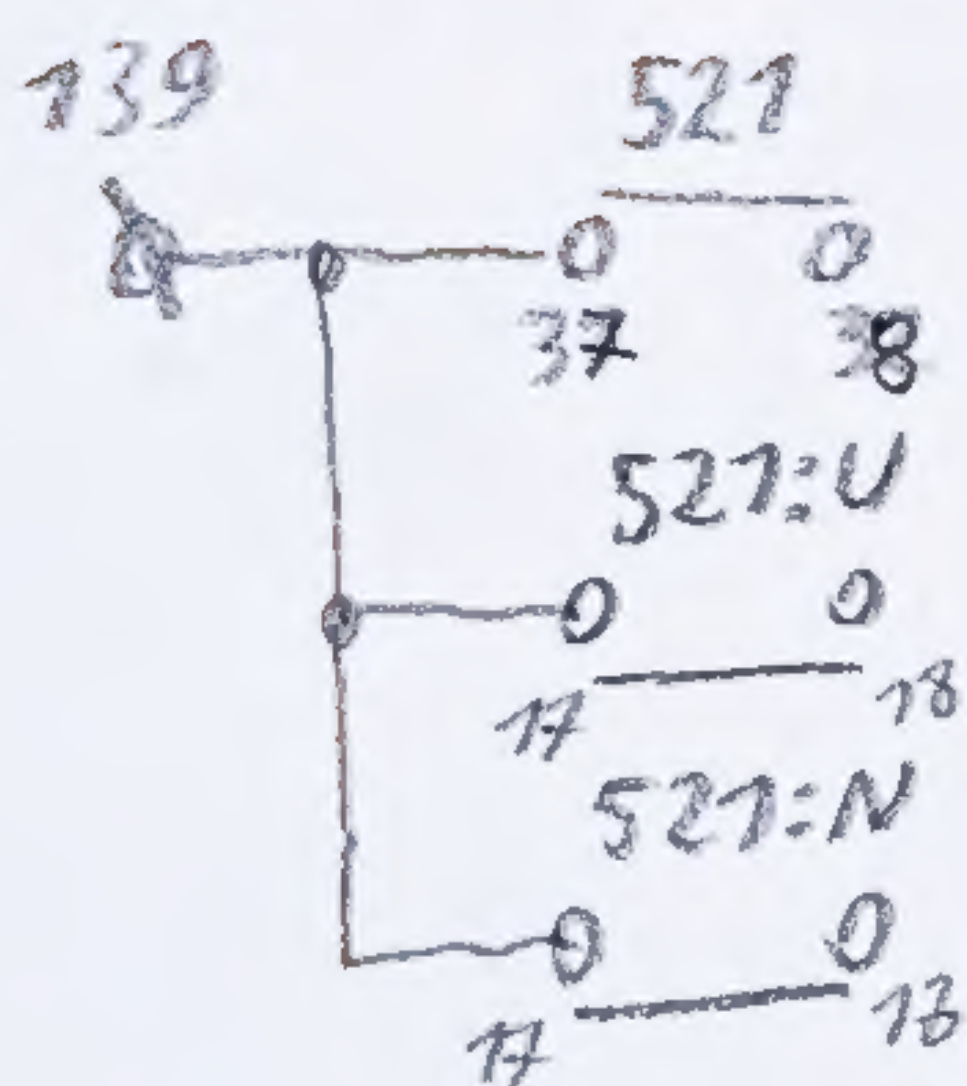 139 521
37 38
521:U
17 18
521:N
17 18